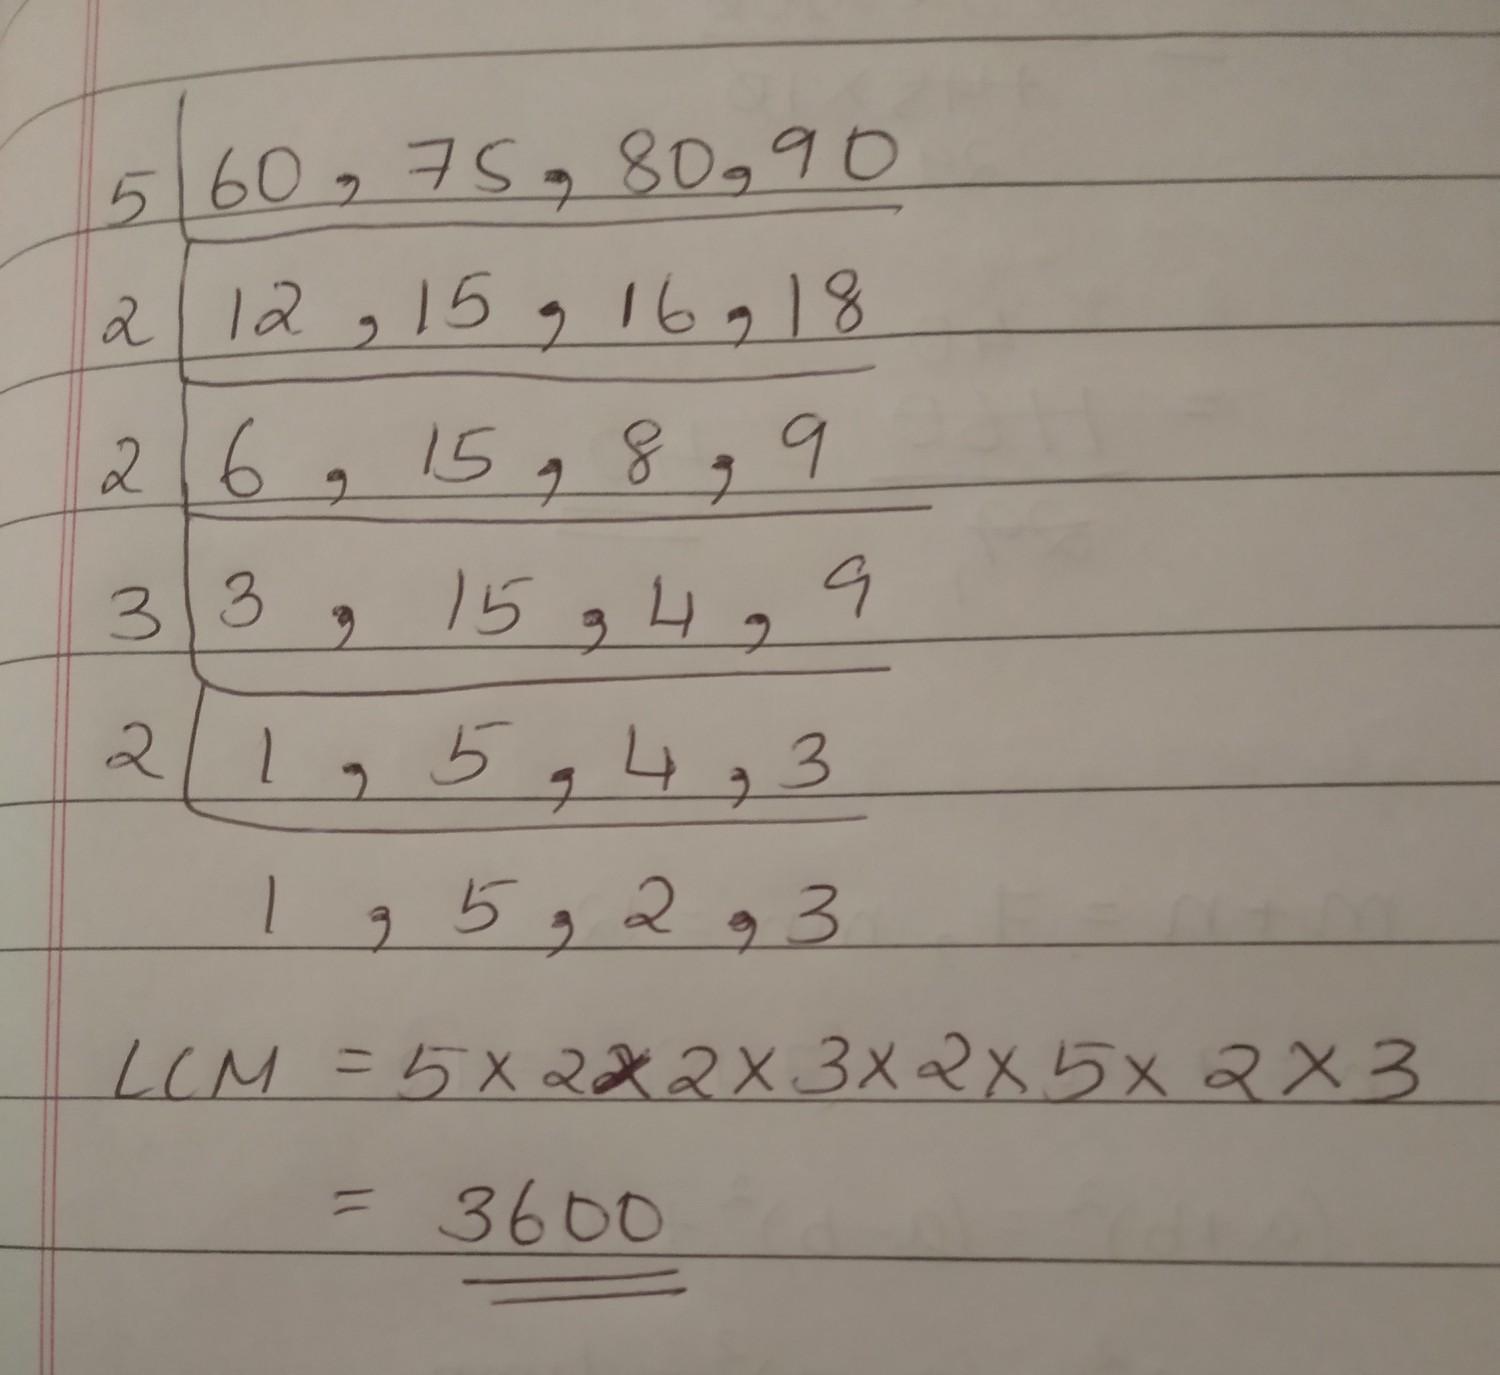 5 60, 75, 80, 90
2 12, 15, 16, 18
2 6, 15, 8, 9
3 3, 15, 4, 9
2 1, 5, 4, 3
1, 5, 2, 3
LCM = 5 × 2 × 2 × 3 × 2 × 5 × 2 × 3
= 3600